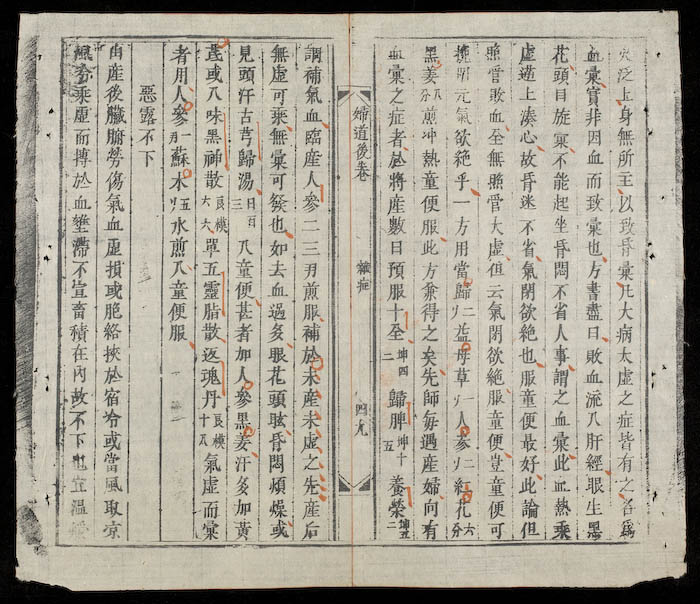 火泛上身無所主以致昏彙凡大病大虛之症皆有之名爲
血彙實非因血而致彙也方書盡曰敗血流入肝經眼生黑
花頭目旋彙不能起坐昏悶不省人事謂之血彙此血熱乘
虛逆上湊心故昏迷不省氣閉欲絶也服童便最好此論但
照管敗血全無照管大虛但云氣閉欲絶服童便豈童便可
挽囘元氣欲絶乎一方用當歸二益母草一人參二紅花六分
黑姜八分煎冲熱童便服此方兼得之矣先師每遇産婦向有
血彙之症者於將産數日預服十全坤四二歸脾坤十五養榮坤五二
婦道後卷 雜症 四九
調補氣血臨産人參二三刄煎服補於未産未虛之先産后
無虛可乘無彙可發也如去血過多眼花頭眩昏悶煩燥或
見頭汗古芎歸湯三日百入童便甚者加人參黑姜汗多加黃
芪或八味黑神散艮横六六單五靈脂散返魂丹艮横十八氣虛而彙
者用人參一刄蘇木五刄水煎入童便服
惡露不下
由産後臟腑勞傷氣血虛損或胞絡挾於宿冷或當風取凉
風冷乘虛而搏於血壅滯不宣畜積在內故不下也宜温